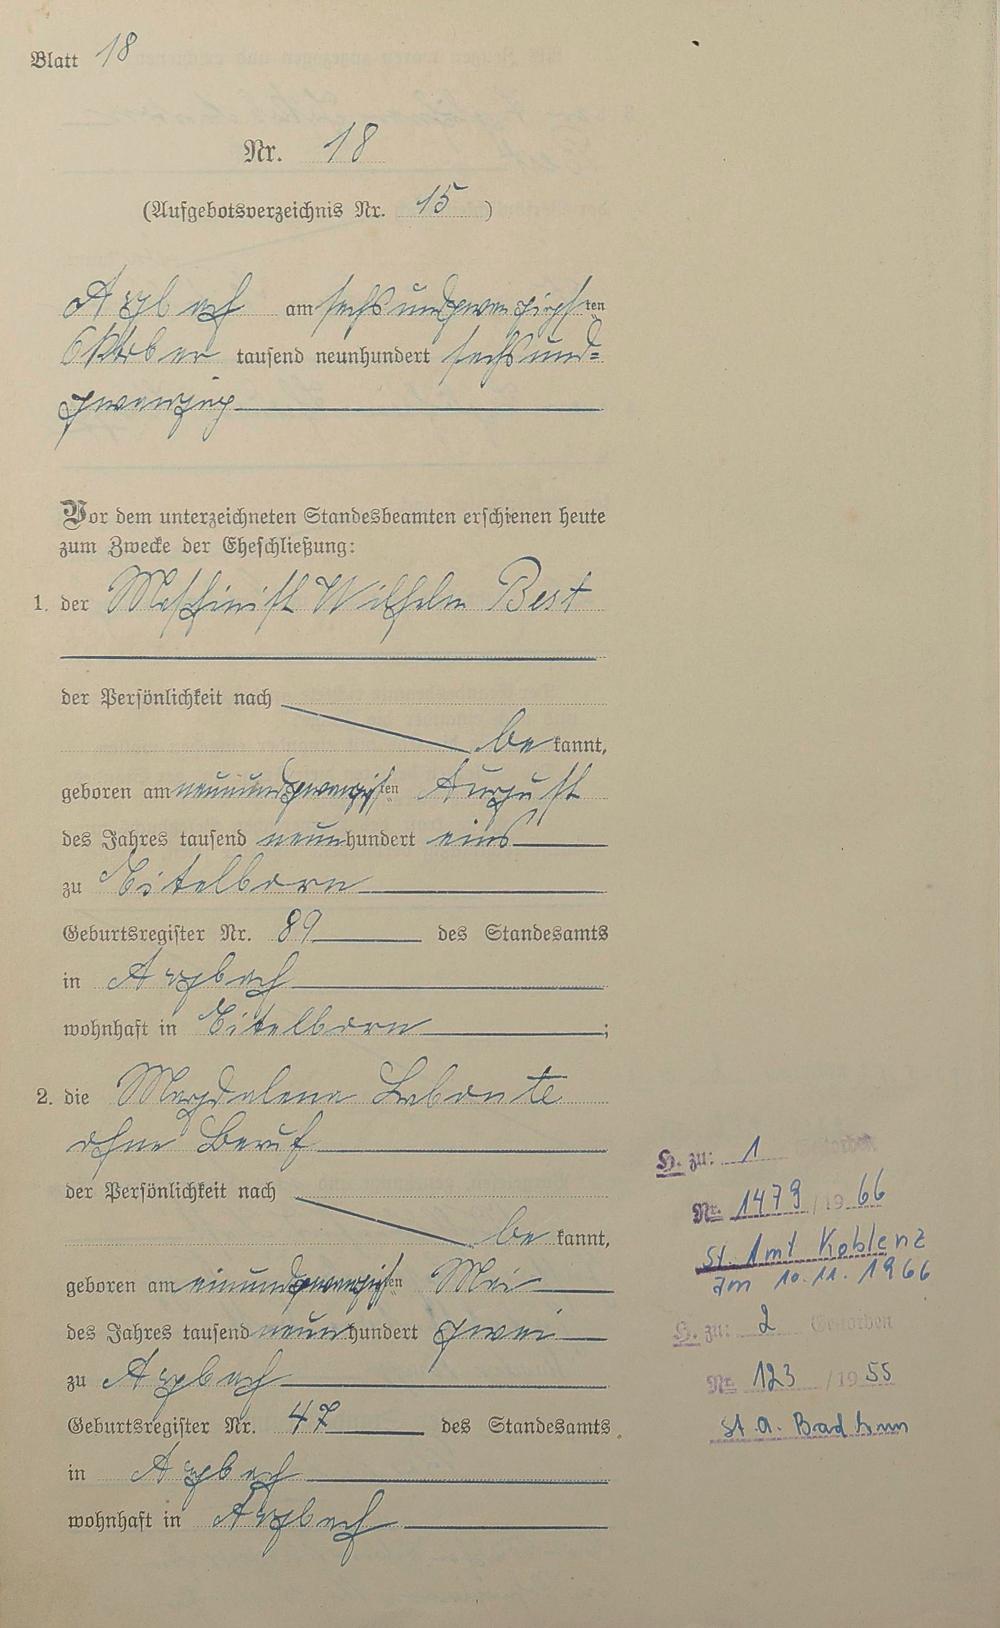 Blatt 18
Nr. 18
(Aufgebotsverzeichnis Nr. 15)
Arzbach am sechsundzwanzigsten
Oktober tausend neunhundert sechsund-
zwanzig
Vor dem unterzeichneten Standesbeamten erschienen heute
zum Zwecke der Eheschließung:
1. der Maschinist Wilhelm Best
der Persönlichkeit nach
be kannt,
geboren am neunundzwanzigsten August
des Jahres tausend neunhundert eins
zu Eitelborn
Geburtsregister Nr. 89 des Standesamts
in Arzbach
wohnhaft in Eitelborn ;
2. die Magdalena Labonte
ohne Beruf
der Persönlichkeit nach
be kannt,
geboren am einundzwanzigsten Mai
des Jahres tausend neunhundert zwei
zu Arzbach
Geburtsregister Nr. 47 des Standesamts
in Arzbach
wohnhaft in Arzbach
H. zu: 1 Gestorben
Nr. 1479 / 1966
St. Amt Koblenz
am 10.11.1966
H. zu: 2 Gestorben
Nr. 123 / 1955
St. A. Bad Ems